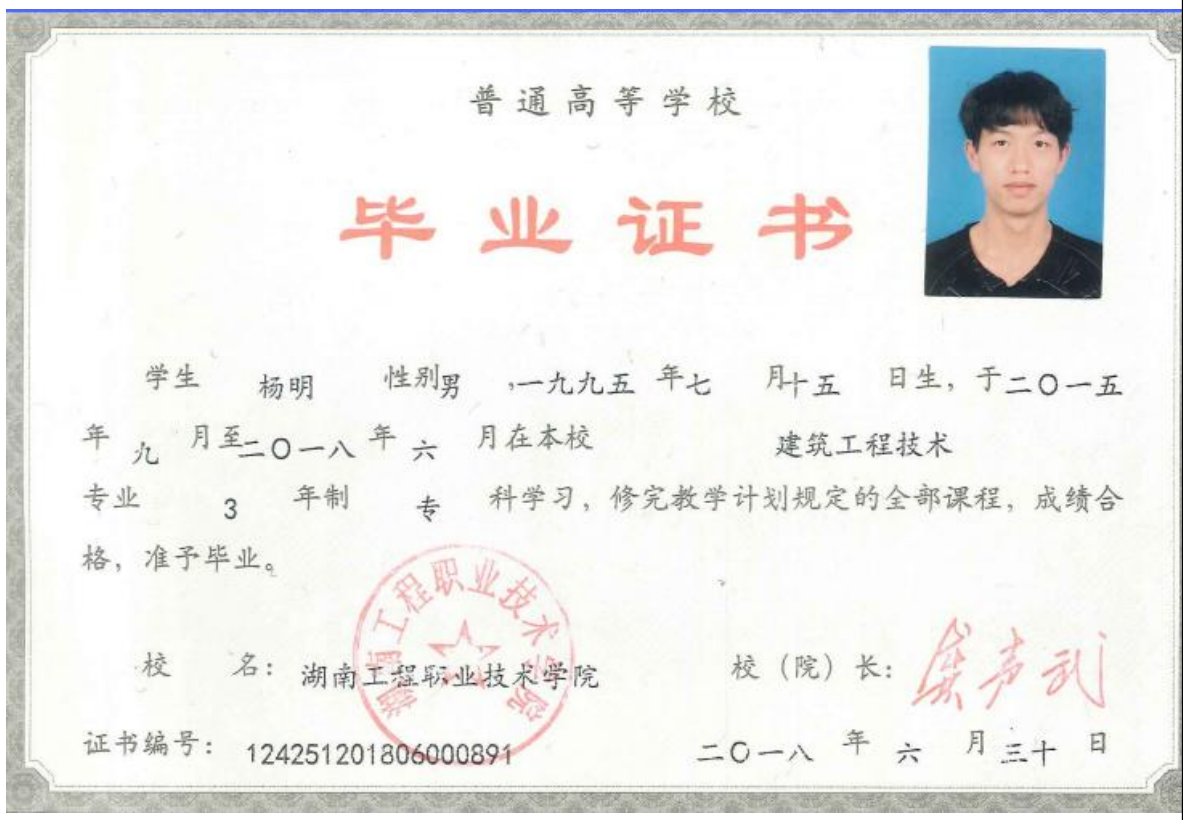 普通高等学校
毕业证书
学生 杨明 性别男 ,一九九五 年七 月十五 日生，于二〇一五
年 九 月至二〇一八 年 六 月在本校 建筑工程技术
专业 3 年制 专 科学习，修完教学计划规定的全部课程，成绩合
格，准予毕业。
湖南工程职业技术学院
校 名：湖南工程职业技术学院 校（院）长：
证书编号：124251201806000891 二〇一八 年 六 月三十 日